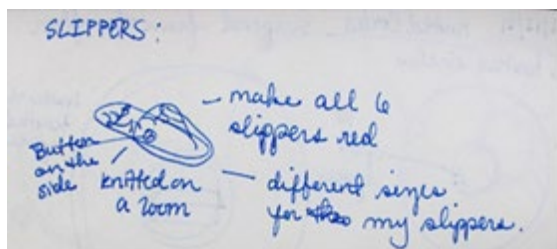 SLIPPERS:
- make all 6
slippers red
Button
on the
side
knitted on
a loom
- different sizes
for my slippers.